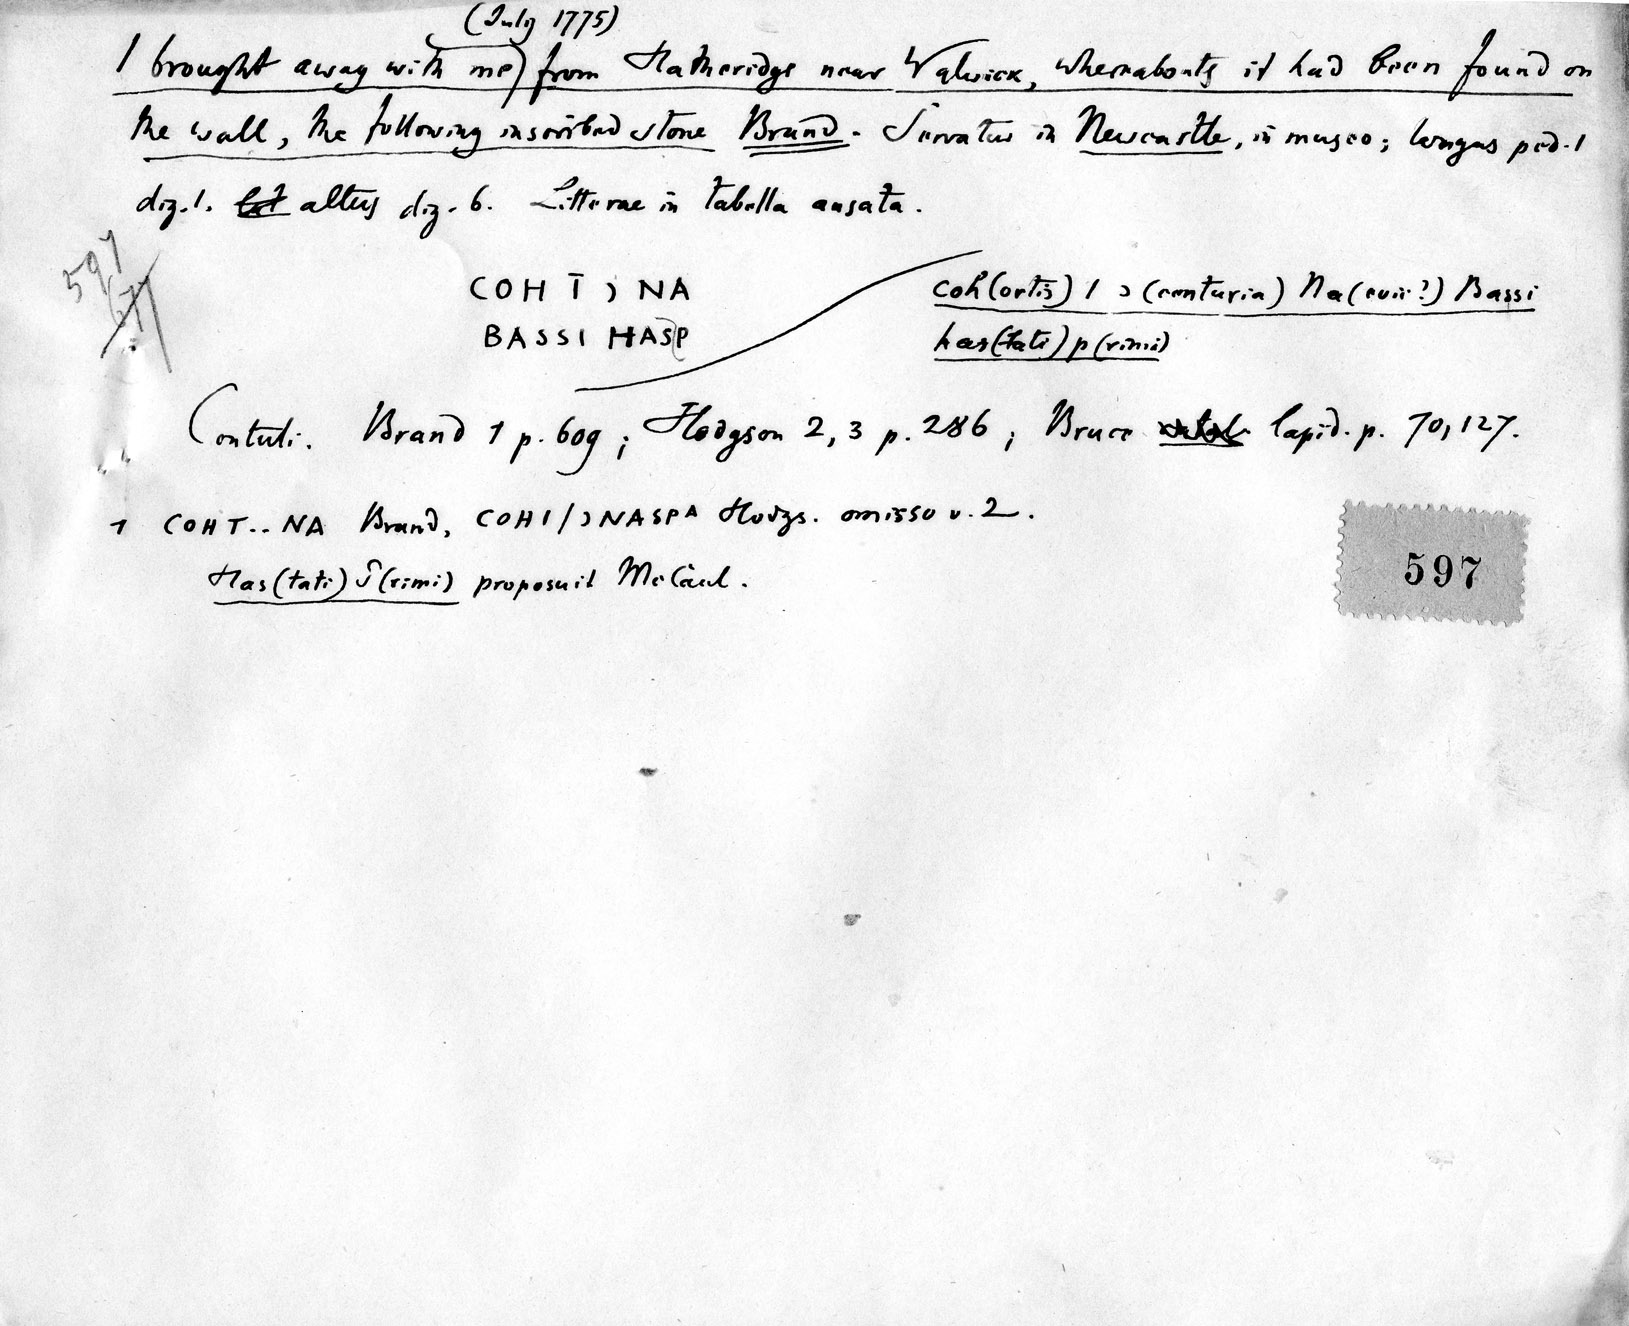 (July 1775)
I brought away with me) from Hatheridge near Walwick, whereabouts it had been found on
the wall, the following inscribed stone Brand. Servatus in Newcastle, in museo; longus ped. 1
dig. 1. altus dig. 6. Litterae in tabella ansata.
597
677
COH I Ɔ NA
BASSI HASP
coh(ortis) I Ɔ (centuria) Na(evii?) Bassi
has(tati) p(rimi)
Contuli. Brand 1 p. 609; Hodgson 2, 3 p. 286; Bruce lapid. p. 70, 127.
1 COHT.. NA Brand, COHI/ƆNASPA Hodgs. omisso v. 2.
Has(tati) P(rimi) proposuit McCaul.
597